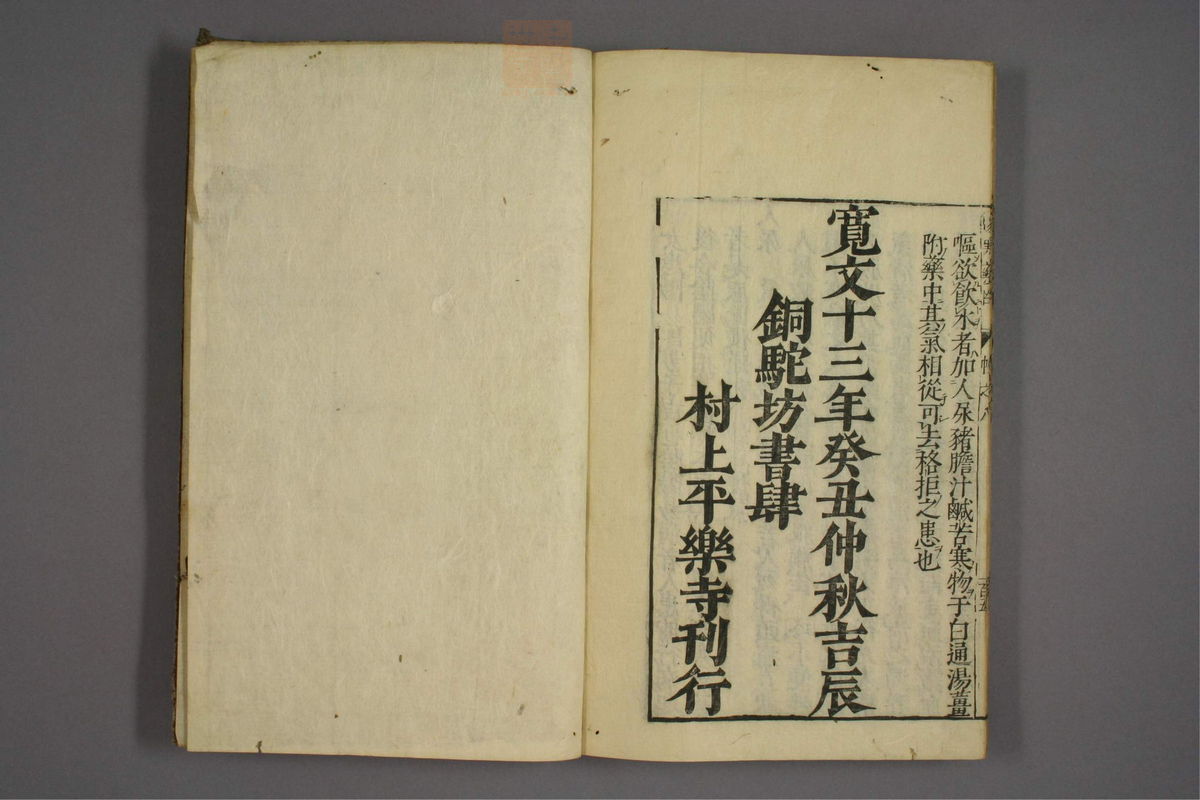 嘔欲飲水者加人尿猪膽汁鹹苦寒物于白通湯薑
附藥中其氣相從可去格拒之患也
寛文十三年癸丑仲秋吉辰
銅駝坊書肆
村上平樂寺刊行